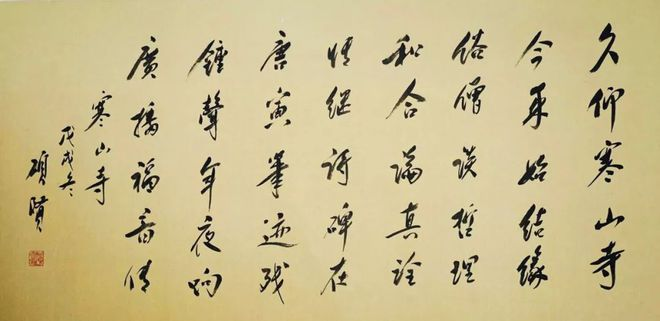 久仰寒山寺
今来始结缘
俗僧谈哲理
和合论真诠
情继诗碑在
唐寅笔迹残
钟声年夜响
广播福音传
寒山寺
戊戌冬
硕贤